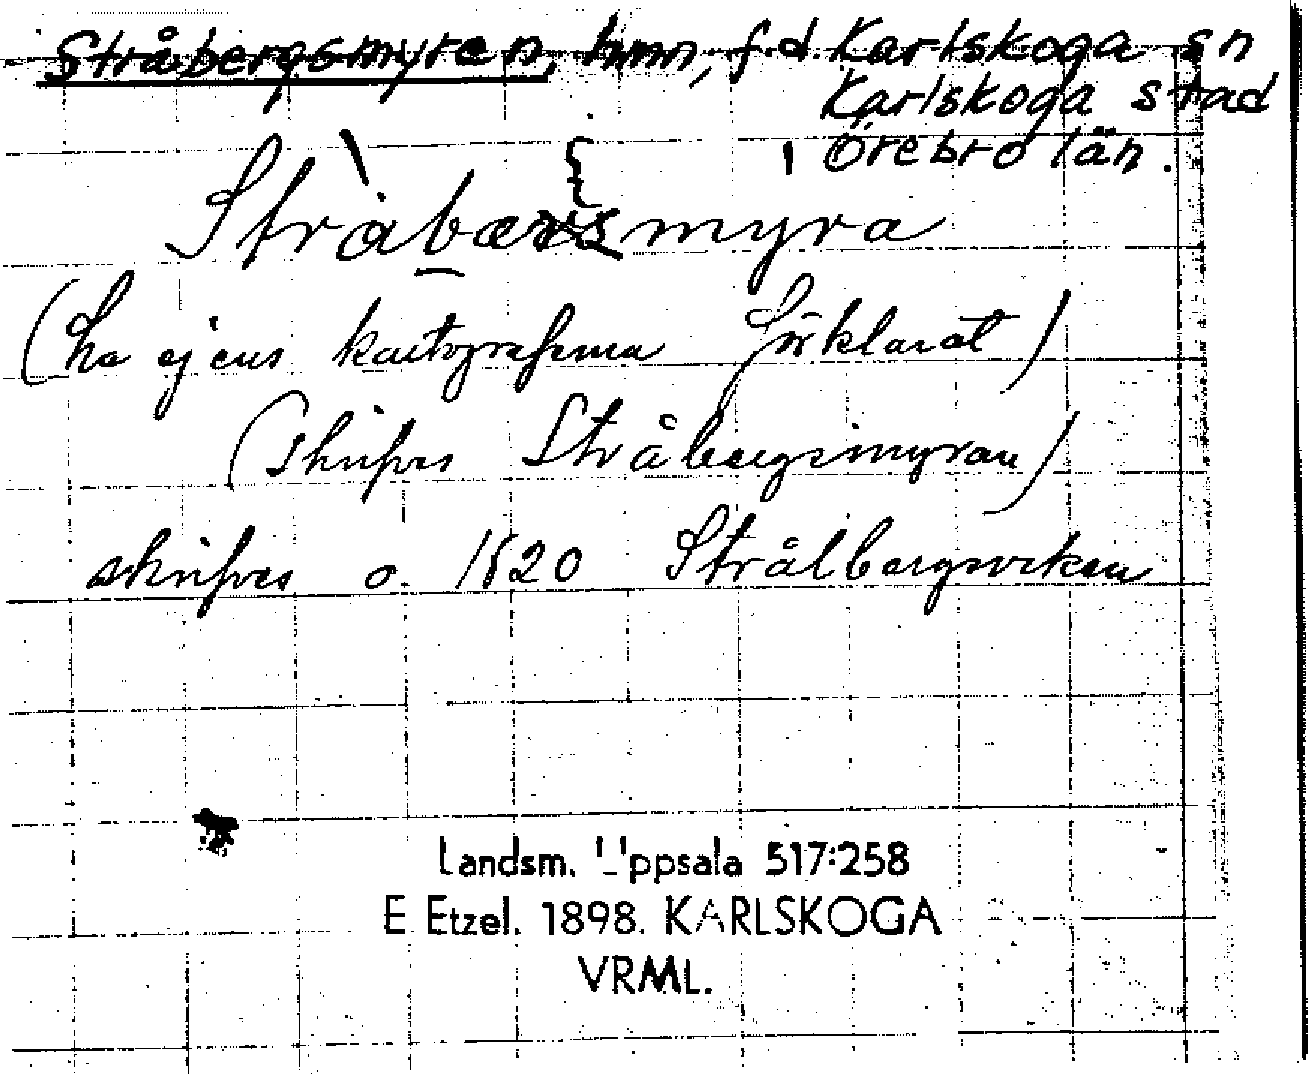 Stråbergsmyren, hmn, f.d. Karlskoga sn
Karlskoga stad
Örebro län.
Stråbærsmyra
(ha ej ens kartograferna förklarat)
(skrifves Stråbergsmyran)
skrifves o. 1820 Strålbergsviken
Landsm. Uppsala 517:258
E Etzel. 1898. KARLSKOGA
VRML.